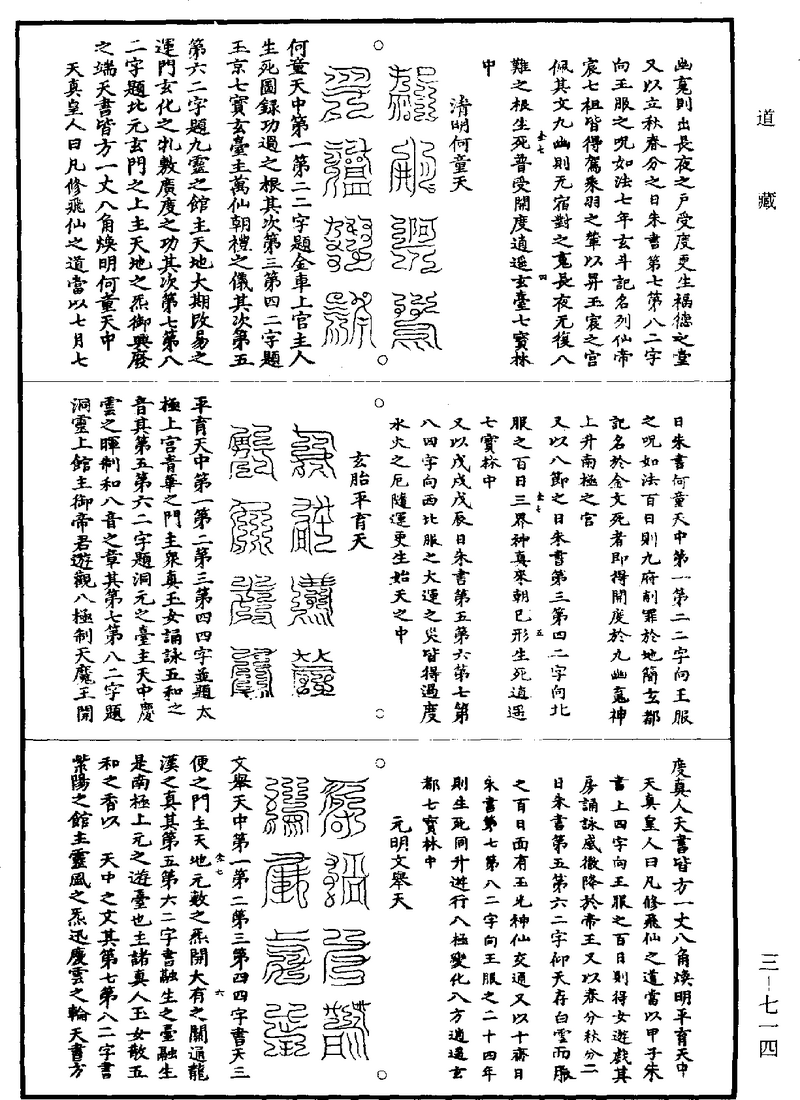 道藏
幽𡖇則出長夜之戶受度更生福德之堂
又以立秋春分之日朱書第七第八二字
向王服之呪如法七年玄斗記名列仙帝
宸七祖皆得駕乘羽之輦以昇玉宸之宮
佩其文九幽則无宿對之䰟長夜无復八
難之根生死普受開度逍遥玄臺七寶林
中
清明何童天
何童天中第一第二二字題金車上官主人
生死圖録功過之根其次第三第四二字題
玉京七寶玄臺主萬仙朝禮之儀其次第五
第六二字題九靈之館主天地大期改易之
運門玄化之㐲敷廣度之功其次第七第八
二字題北元玄門之上主天地之炁御興廢
之端天書皆方一丈八角煥明何童天中
天真皇人曰凡修飛仙之道當以七月七
日朱書何童天中第一第二二字向王服
之呪如法百日則九府削罪於地簡玄都
記名於金文死者即得開度於九幽䰟神
上升南極之宮
又以八節之日朱書第三第四二字向北
服之百日三界神真來朝巳形生死逍遥
七寶林中
又以戊戌戊辰日朱書第五第六第七第
八四字向西北服之大運之災皆得過度
水火之厄隨運更生始天之中
玄胎平育天
平育天中第一第二第三第四四字並題太
極上宮青華之門主衆真玉女誦詠五和之
音其第五第六二字題洞元之臺主天中慶
雲之暉制和八音之章其第七第八二字題
洞靈上館主御帝君遊觀八極制天魔王開
度真人天書皆方一丈八角煥明平育天中
天真皇人曰凡修飛仙之道當以甲子朱
書上四字向王服之百日則得女遊戲其
房誦詠感徹降於帝王又以春分秋分二
日朱書第五第六二字仰天存白雲而服
之百日面有玉光神仙交通又以十齋日
朱書第七第八二字向王服之二十四年
則生死同升遊行八極變化八方逍遥玄
都七寶林中
元明文舉天
文舉天中第一第二第三第四四字書天三
便之門主天地元數之炁開大有之關通龍
漢之真其第五第六二字書融生之臺融生
是南極上元之遊臺也主諸真人玉女散五
和之香以 天中之文其第七第八二字書
紫陽之館主靈風之炁迅慶雲之輪天書方
三—七一四